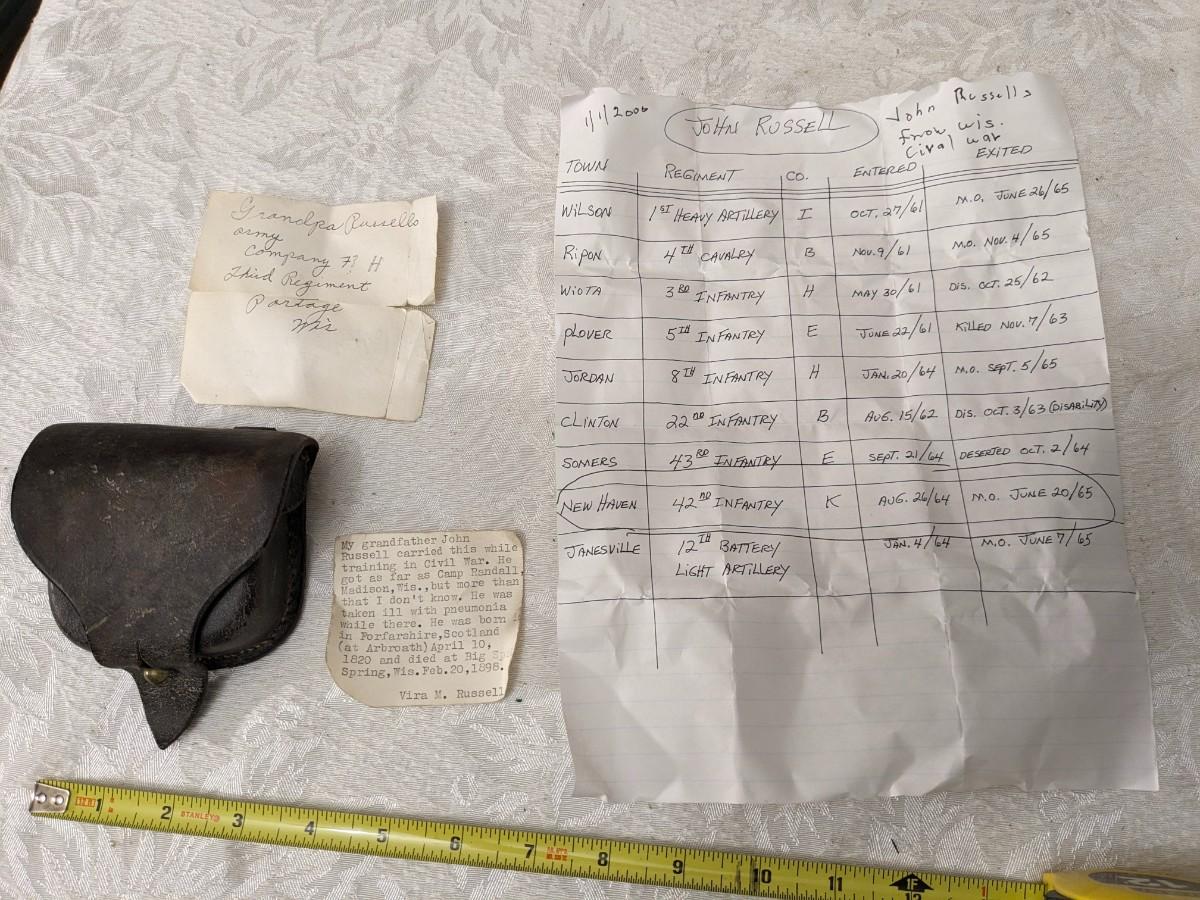 Grandpa Russells
army
Company F? H
Third Regiment
Portage
Wis
My grandfather John
Russell carried this while
training in Civil War. He
got as far as Camp Randall
Madison,Wis.,but more than
that I don't know. He was
taken ill with pneumonia
while there. He was born
in Forfarshire,Scotland
(at Arbroath)April 10,
1820 and died at Big Sp
Spring,Wis.Feb.20,1898.
Vira M. Russell
1/1/2000
JOHN RUSSELL
John Russells
from wis.
Cival war
TOWN REGIMENT CO. ENTERED EXITED
WILSON 1ST HEAVY ARTILLERY I OCT. 27/61 M.O. JUNE 26/65
RIPON 4TH CAVALRY B NOV. 9/61 M.O. NOV. 4/65
WIOTA 3RD INFANTRY H MAY 30/61 DIS. OCT. 25/62
PLOVER 5TH INFANTRY E JUNE 22/61 KILLED NOV. 7/63
JORDAN 8TH INFANTRY H JAN. 20/64 M.O. SEPT. 5/65
CLINTON 22ND INFANTRY B AUG. 15/62 DIS. OCT. 3/63 (DISABILITY)
SOMERS 43RD INFANTRY E SEPT. 21/64 DESERTED OCT. 2/64
NEW HAVEN 42ND INFANTRY K AUG. 26/64 M.O. JUNE 20/65
JANESVILLE 12TH BATTERY JAN. 4/64 M.O. JUNE 7/65
LIGHT ARTILLERY
1 2 STANLEY® 3 4 5 6 7 8 9 10 11 1F